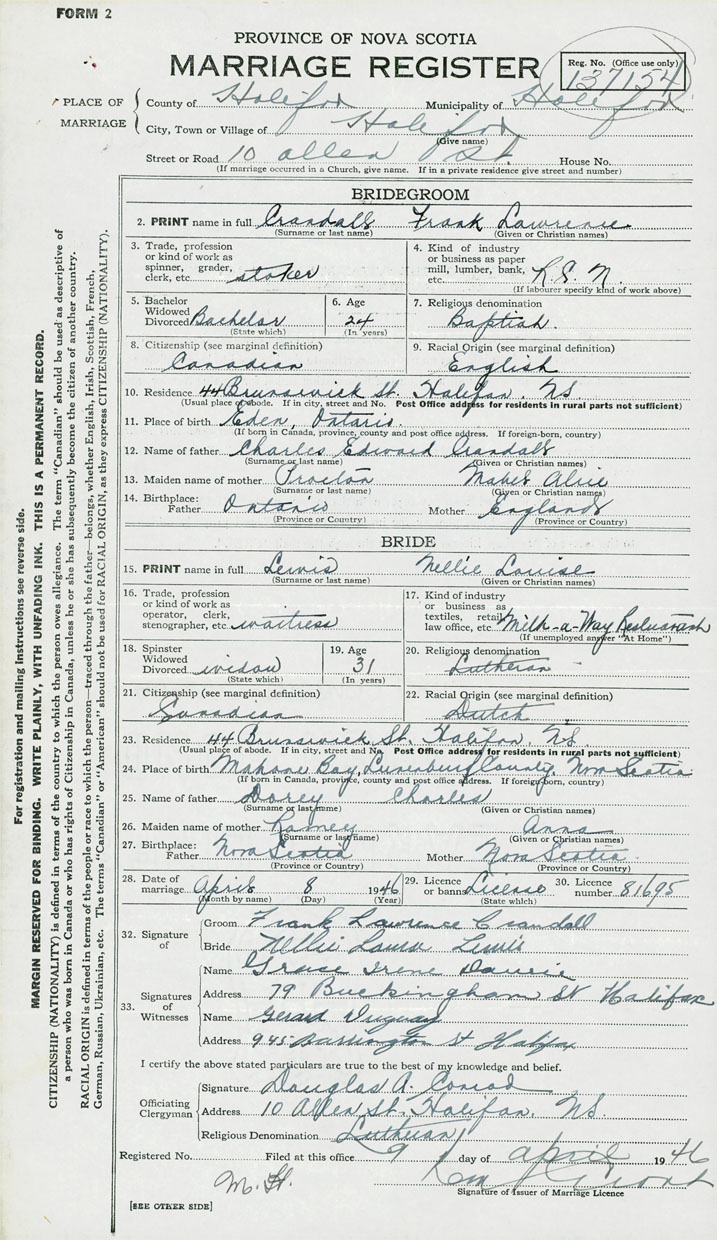 FORM 2
PROVINCE OF NOVA SCOTIA
MARRIAGE REGISTER
Reg. No. (Office use only)
137154
PLACE OF MARRIAGE
County of Halifax Municipality of Halifax
City, Town or Village of Halifax
(Give name)
Street or Road 10 Allen St. House No.
(If marriage occurred in a Church, give name. If in a private residence give street and number)
BRIDEGROOM
2. PRINT name in full Crandall Frank Lawrence
(Surname or last name) (Given or Christian names)
3. Trade, profession or kind of work as spinner, grader, clerk, etc. stoker
4. Kind of industry or business as paper mill, lumber, bank, etc. R.C.N.
(If labourer specify kind of work above)
5. Bachelor Widowed Divorced Bachelor
(State which)
6. Age 24
(In years)
7. Religious denomination
Baptist.
8. Citizenship (see marginal definition)
Canadian
9. Racial Origin (see marginal definition)
English
10. Residence 44 Brunswick St. Halifax. NS
(Usual place of abode. If in city, street and No. Post Office address for residents in rural parts not sufficient)
11. Place of birth Eden, Ontario.
(If born in Canada, province, county and post office address. If foreign-born, country)
12. Name of father Charles Edward Crandall
(Surname or last name) (Given or Christian names)
13. Maiden name of mother Procton Mabel Alice
(Surname or last name) (Given or Christian names)
14. Birthplace:
Father Ontario Mother England
(Province or Country) (Province or Country)
BRIDE
15. PRINT name in full Lewis Nellie Louise
(Surname or last name) (Given or Christian names)
16. Trade, profession or kind of work as operator, clerk, stenographer, etc. waitress
17. Kind of industry or business as textiles, retail, law office, etc. Milk-a-Way Restuarash
(If unemployed answer "At Home")
18. Spinster Widowed Divorced widow
(State which)
19. Age
31
(In years)
20. Religious denomination
Lutheran
21. Citizenship (see marginal definition)
Canadian
22. Racial Origin (see marginal definition)
Dutch
23. Residence 44 Brunswick St. Halifax, NS
(Usual place of abode. If in city, street and No. Post Office address for residents in rural parts not sufficient)
24. Place of birth Mahone Bay, Lunenburg County, Nova Scotia
(If born in Canada, province, county and post office address. If foreign-born, country)
25. Name of father Dorey Charles
(Surname or last name) (Given or Christian names)
26. Maiden name of mother Ramey Anna
(Surname or last name) (Given or Christian names)
27. Birthplace:
Father Nova Scotia Mother Nova Scotia.
(Province or Country) (Province or Country)
28. Date of marriage April 8 1946
(Month by name) (Day) (Year)
29. Licence or banns License
(State which)
30. Licence number 81695
32. Signature of
Groom Frank Lawrence Crandall
Bride Nellie Lewis
33. Signatures of Witnesses
Name Grace Irene
Address 79 Buckingham St Halifax
Name Gerard Duguay
Address 945 Barrington St Halifax
I certify the above stated particulars are true to the best of my knowledge and belief.
Officiating Clergyman
Signature Douglas A. Conrad
Address 10 Allen St. Halifax. NS.
Religious Denomination Lutheran
Registered No. Filed at this office 9 day of April 1946
M. H.
Signature of Issuer of Marriage Licence
[SEE OTHER SIDE]
For registration and mailing instructions see reverse side.
MARGIN RESERVED FOR BINDING. WRITE PLAINLY, WITH UNFADING INK. THIS IS A PERMANENT RECORD.
CITIZENSHIP (NATIONALITY) is defined in terms of the country to which the person owes allegiance. The term "Canadian" should be used as descriptive of
a person who was born in Canada or who has rights of Citizenship in Canada, unless he or she has subsequently become the citizen of another country.
RACIAL ORIGIN is defined in terms of the people or race to which the person—traced through the father—belongs, whether English, Irish, Scottish, French,
German, Russian, Ukrainian, etc. The terms "Canadian" or "American" should not be used for RACIAL ORIGIN, as they express CITIZENSHIP (NATIONALITY).